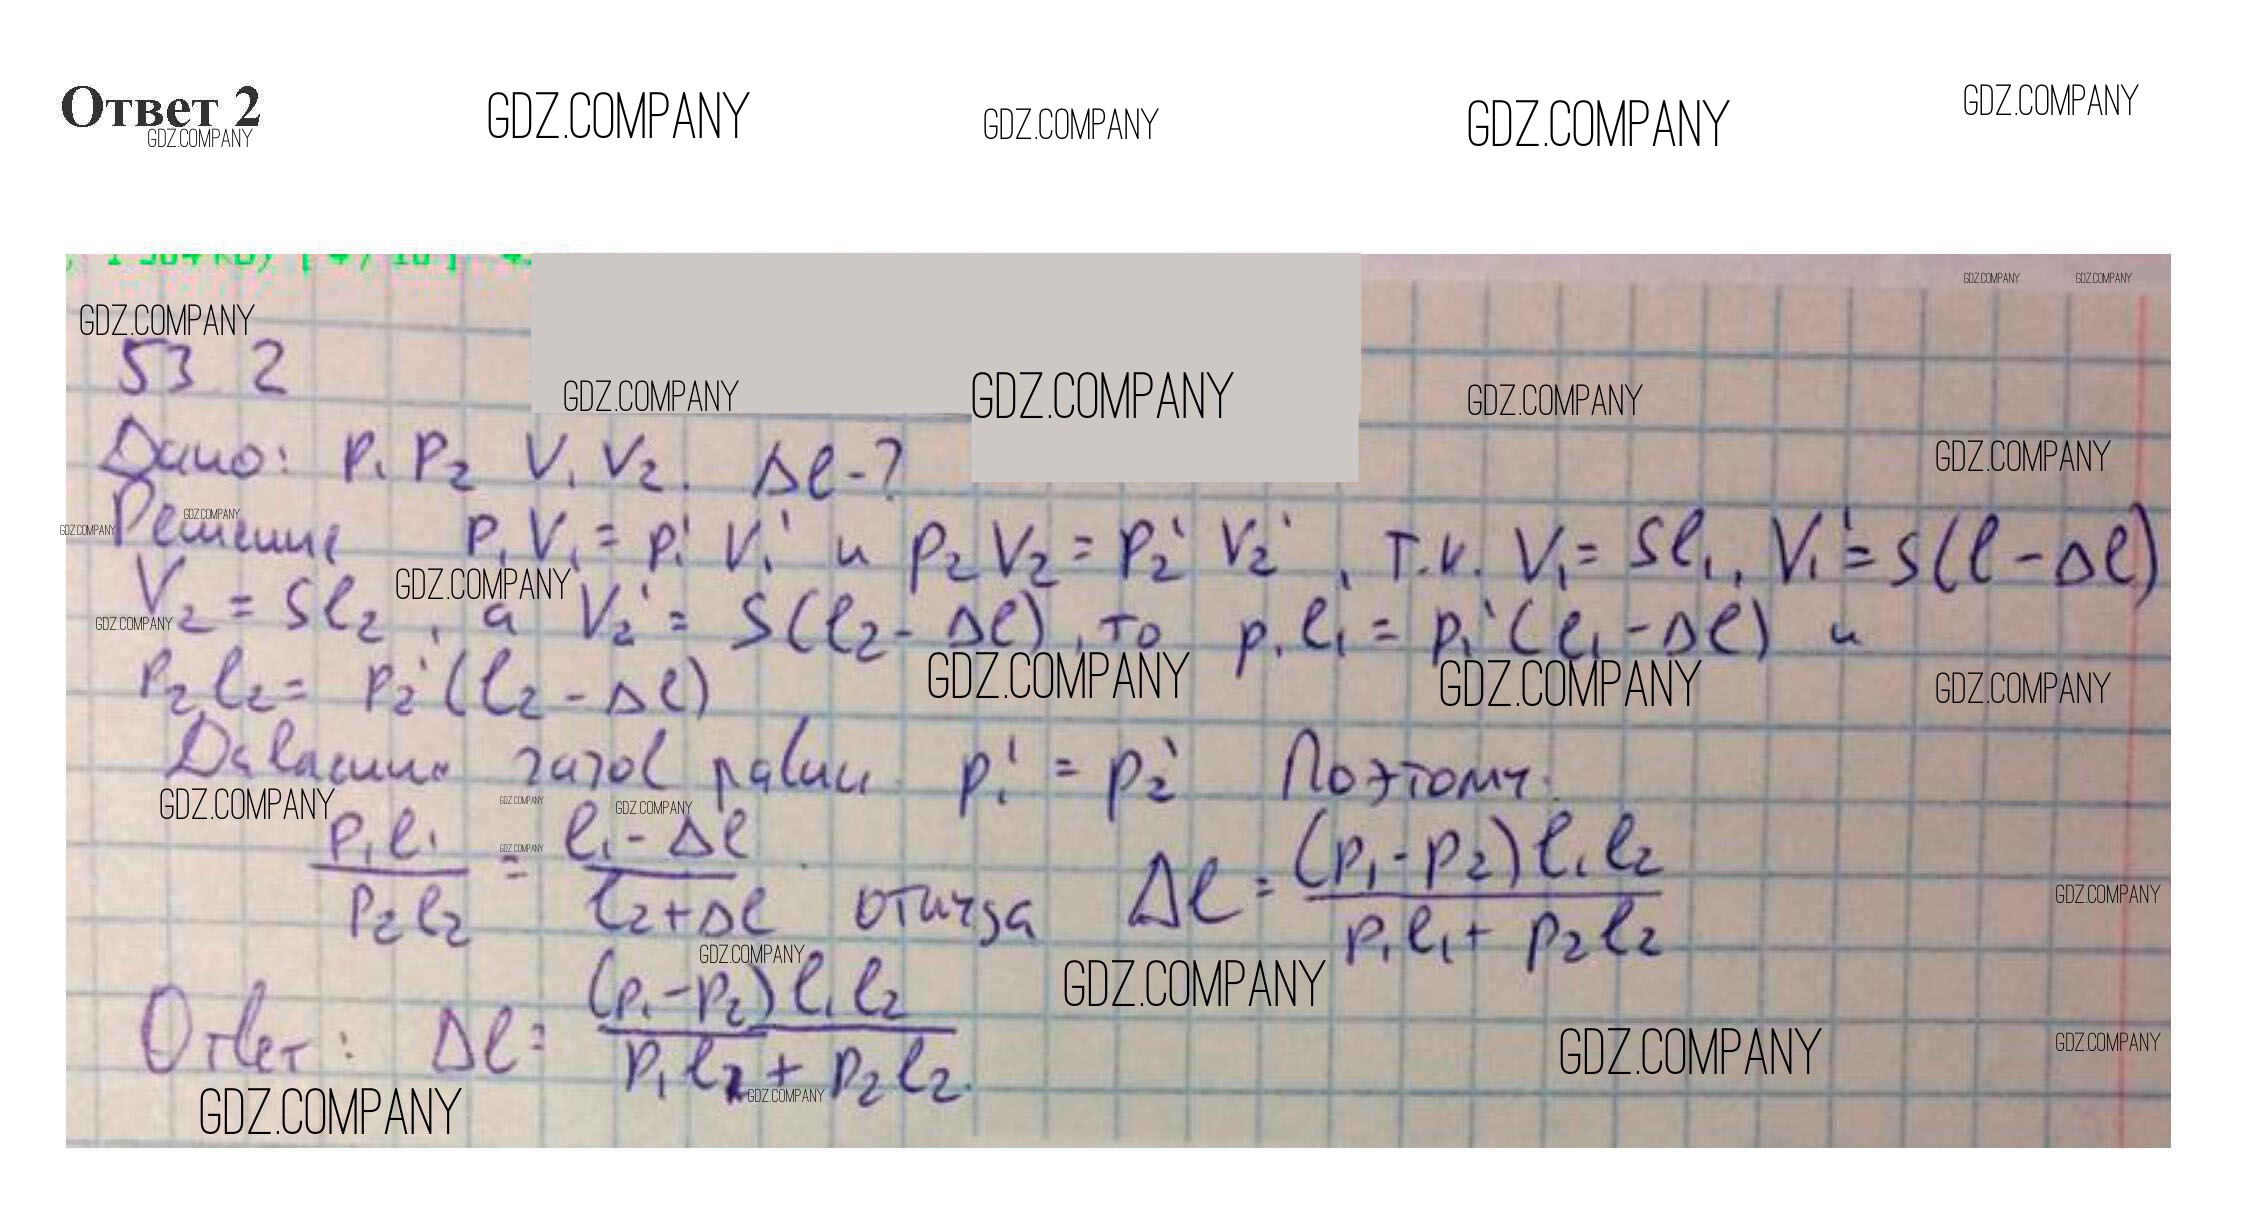 Ответ 2
GDZ.COMPANY GDZ.COMPANY GDZ.COMPANY GDZ.COMPANY GDZ.COMPANY
GDZ.COMPANY GDZ.COMPANY
GDZ.COMPANY
53 2
GDZ.COMPANY GDZ.COMPANY GDZ.COMPANY
Дано: p₁ p₂ V₁ V₂. Δl-?
GDZ.COMPANY
GDZ.COMPANY GDZ.COMPANY
Решение p₁V₁ = p₁' V₁' и p₂V₂ = p₂' V₂', т.к. V₁ = Sl₁, V₁' = S(l - Δl)
GDZ.COMPANY
V₂ = Sl₂, а V₂' = S(l₂ - Δl), то p₁l₁ = p₁'(l₁ - Δl) и
GDZ.COMPANY
p₂l₂ = p₂'(l₂ - Δl)
GDZ.COMPANY GDZ.COMPANY GDZ.COMPANY
Давление газов равны p₁' = p₂' Поэтому:
GDZ.COMPANY GDZ.COMPANY GDZ.COMPANY
p₁l₁ / p₂l₂ = l₁ - Δl / l₂ + Δl откуда Δl = (p₁ - p₂)l₁l₂ / p₁l₁ + p₂l₂
GDZ.COMPANY GDZ.COMPANY
GDZ.COMPANY GDZ.COMPANY
Ответ: Δl = (p₁ - p₂)l₁l₂ / p₁l₁ + p₂l₂.
GDZ.COMPANY GDZ.COMPANY
GDZ.COMPANY GDZ.COMPANY